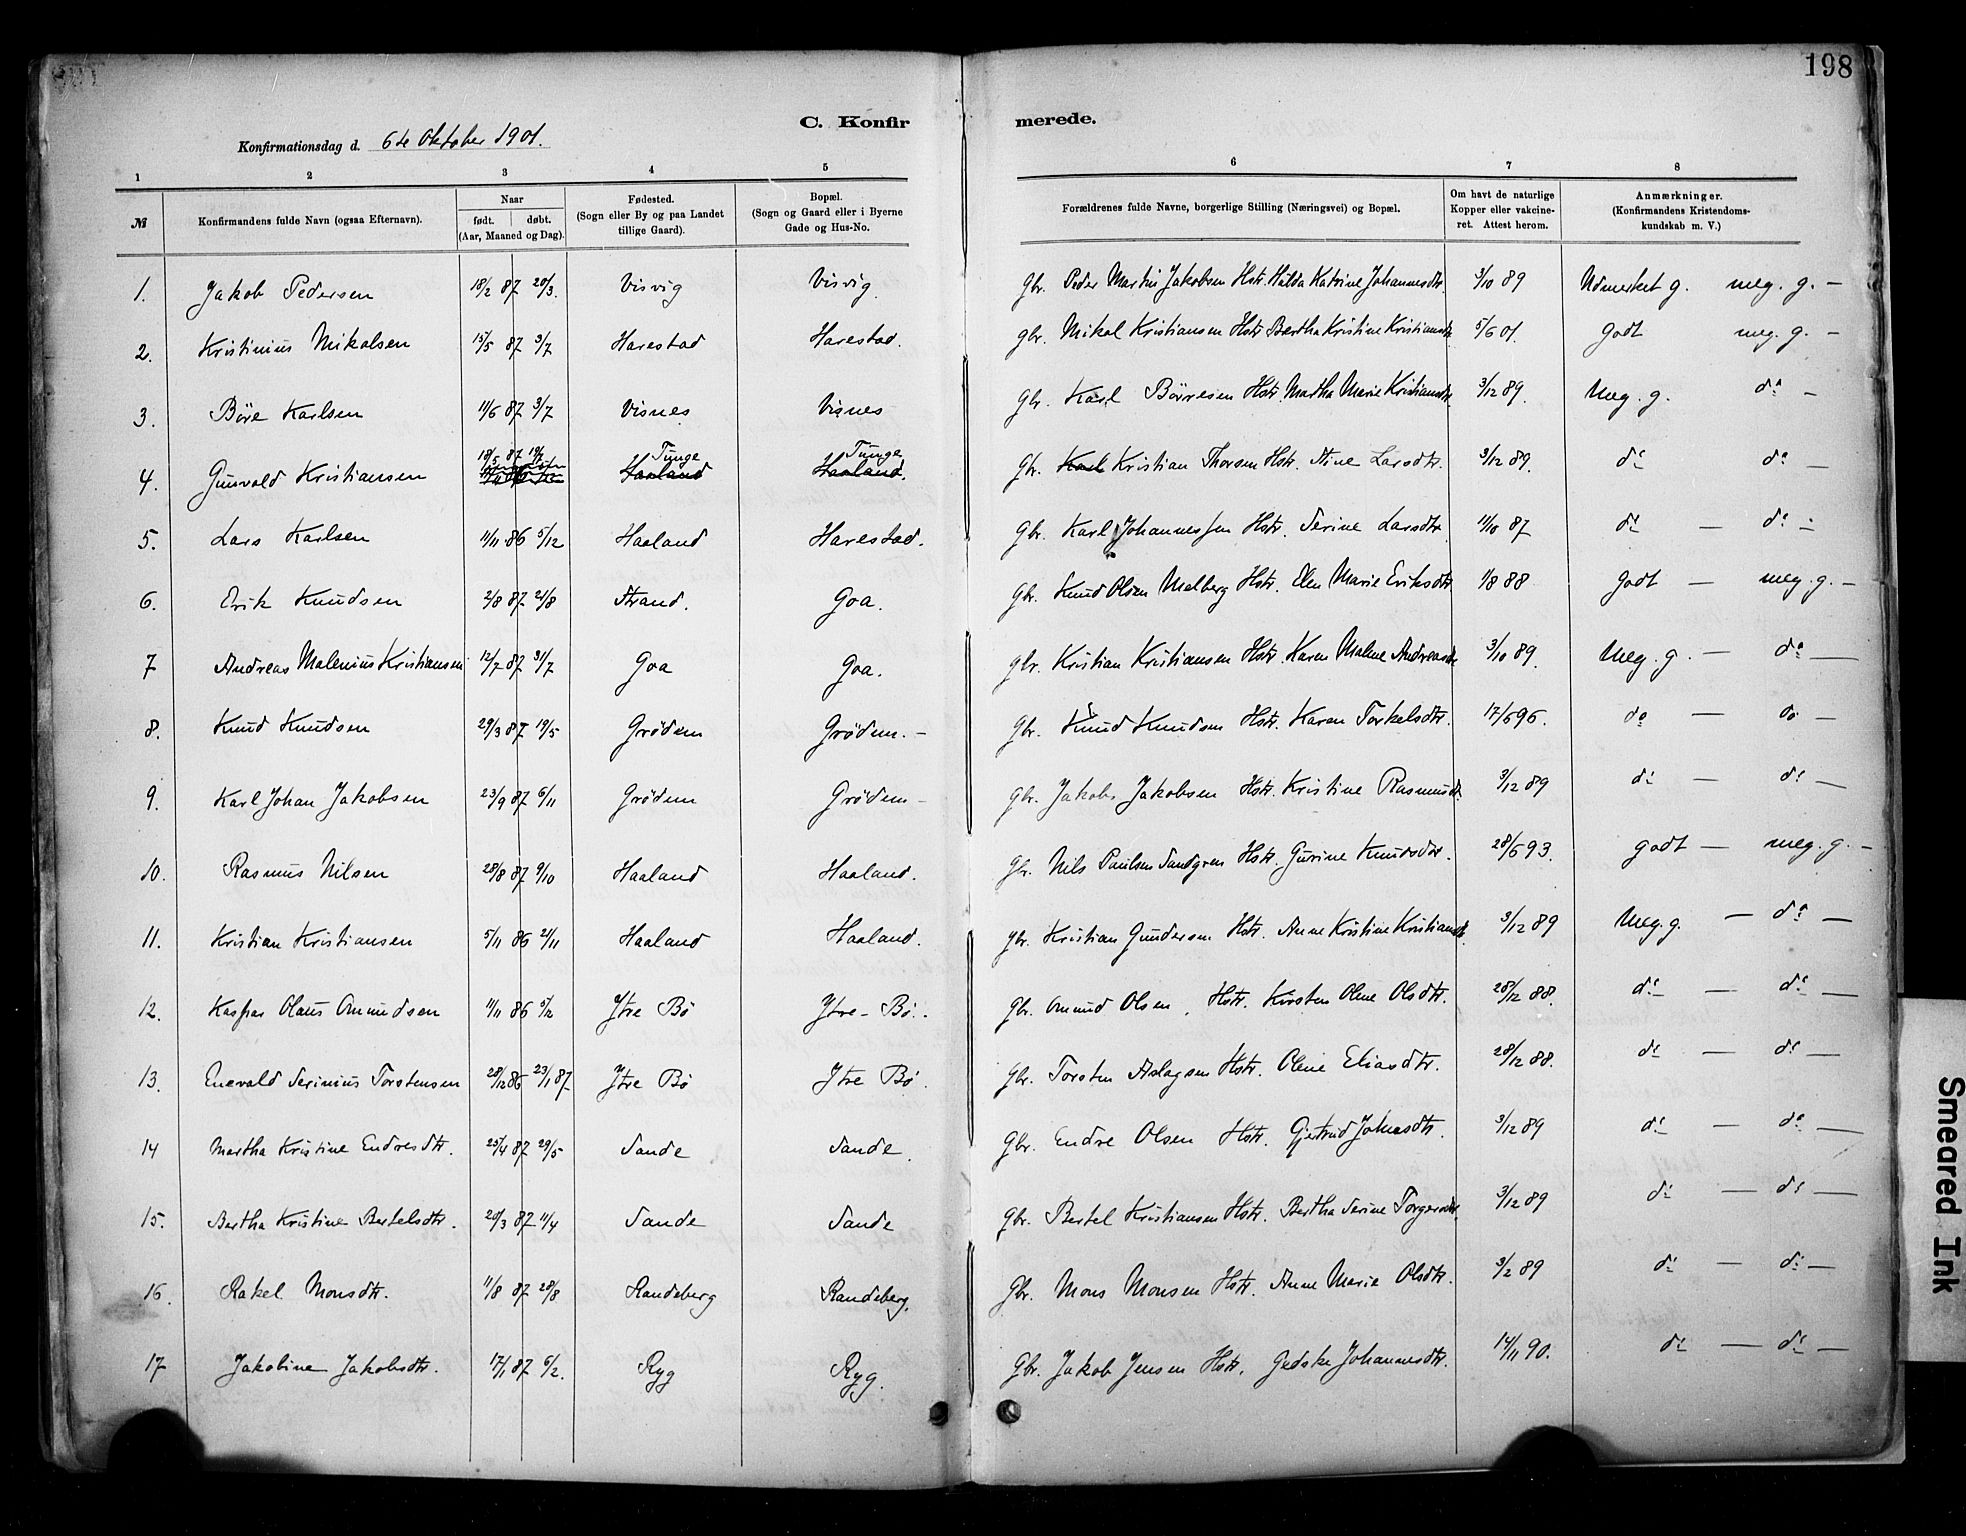 198
C. Konfir merede.
Konfirmationsdag d. 6te Oktober 1901.
1 2 3 4 5 6 7 8
№ Konfirmandens fulde Navn (ogsaa Efternavn). Naar født. døbt. (Aar, Maaned og Dag). Fødested. (Sogn eller By og paa Landet tillige Gaard). Bopæl. (Sogn og Gaard eller i Byerne Gade og Hus-No. Forældrenes fulde Navne, borgerlige Stilling (Næringsvei) og Bopæl. Om havt de naturlige Kopper eller vakcineret. Attest herom. Anmærkninger. (Konfirmandens Kristendomskundskab m. V.)
1. Jakob Pedersen 18/2 87 20/3. Visvig Visvig. Gbr. Peder Martin Jakobsen Hstr. Hilda Katrine Johannesdtr. 3/10 89 Udmerket g. meg. g. –
2. Kristinius Mikalsen 15/5 87 3/7 Harestad Harestad. gbr. Mikal Kristiansen Hstr Bertha Kristine Kristiansdtr 5/6 01. godt meg. g. –
3. Böre Karlsen 11/6 87 3/7 Visnes Visnes gbr. Karl Börresen Hstr. Martha Marie Kristiansdtr. 3/12 89. Meg. g. do –
4. Gunvald Kristiansen 18/5 87 19/6 Tunge Haaland Tunge Haaland. Gbr. Karl Kristian Thorsen Hstr. Stine Larsdtr. 3/12 89. do do –
5. Lars Karlsen 11/11 86 5/12 Haaland Harestad. Gbr. Karl Johannessen Hstr. Serine Larsdtr 11/10 87 do – do –
6. Erik Knudsen 2/8 87 21/8 Strand. Goa. gbr. Knud Olsen Malberg Hstr. Elen Marie Eriksdtr 1/8 88 godt – meg. g. –
7 Andreas Malenius Kristiansen 12/7 87 31/7 Goa Goa. gbr. Kristian Kristiansen Hstr. Karen Malene Andreasdtr 3/10 89. Meg. g. – do –
8. Knud Knudsen 29/3 87 19/5 Grödem Grödem. – Gbr. Knud Knudsen Hstr. Karen Torkelsdtr. 17/6 96. do – do –
9. Karl Johan Jakobsen 23/9 87 6/11 Grödem Grödem – gbr. Jakob Jakobsen Hstr. Kristine Rasmusdtr. 3/12 89 do – do –
10. Rasmus Nilsen 28/8 87 9/10 Haaland Haaland. Gbr. Nils Paulsen Sandgren Hstr. Gurine Knudsdtr. 28/6 93. godt – meg. g. –
11. Kristian Kristiansen 5/11 86 21/11 Haaland Haaland. gbr. Kristian Gundersen Hstr. Anne Kristine Kristiansdtr. 3/12 89 Meg. g. – do –
12. Kaspar Olaus Omundsen 11/11 86 5/12 Ytre Bö Ytre – Bö. Gbr. Omund Olsen, Hstr. Kirsten Olene Olsdtr. 28/12 88. do – do –
13. Enevald Serinius Torstensen 28/12 86 23/1 87. Ytre Bö Ytre Bö. gbr. Torsten Aslagsen Hstr. Olene Eliasdtr. 28/12 88. do – do –
14 Martha Kristine Endresdtr. 25/4 87 29/5 Sande Sande. Gbr. Endre Olsen Hstr. Gjertrud Johnsdtr. 3/12 89 do – do –
15. Bertha Kristine Bertelsdtr. 20/3 87 11/4 Sande Sande Gbr. Bertel Kristiansen Hstr. Bertha Serine Torgersdtr. 3/12 89 do – do –
16. Rakel Monsdtr. 11/8 87 28/8 Randeberg Randeberg. Gbr. Mons Monsen Hstr. Anne Marie Olsdtr. 3/2 89 do – do –
17 Jakobine Jakobsdtr. 17/1 87 6/2. Ryg Ryg. Gbr. Jakob Jensen Hstr. Gedske Johannesdtr. 14/11 90. do – do –
Smeared Ink